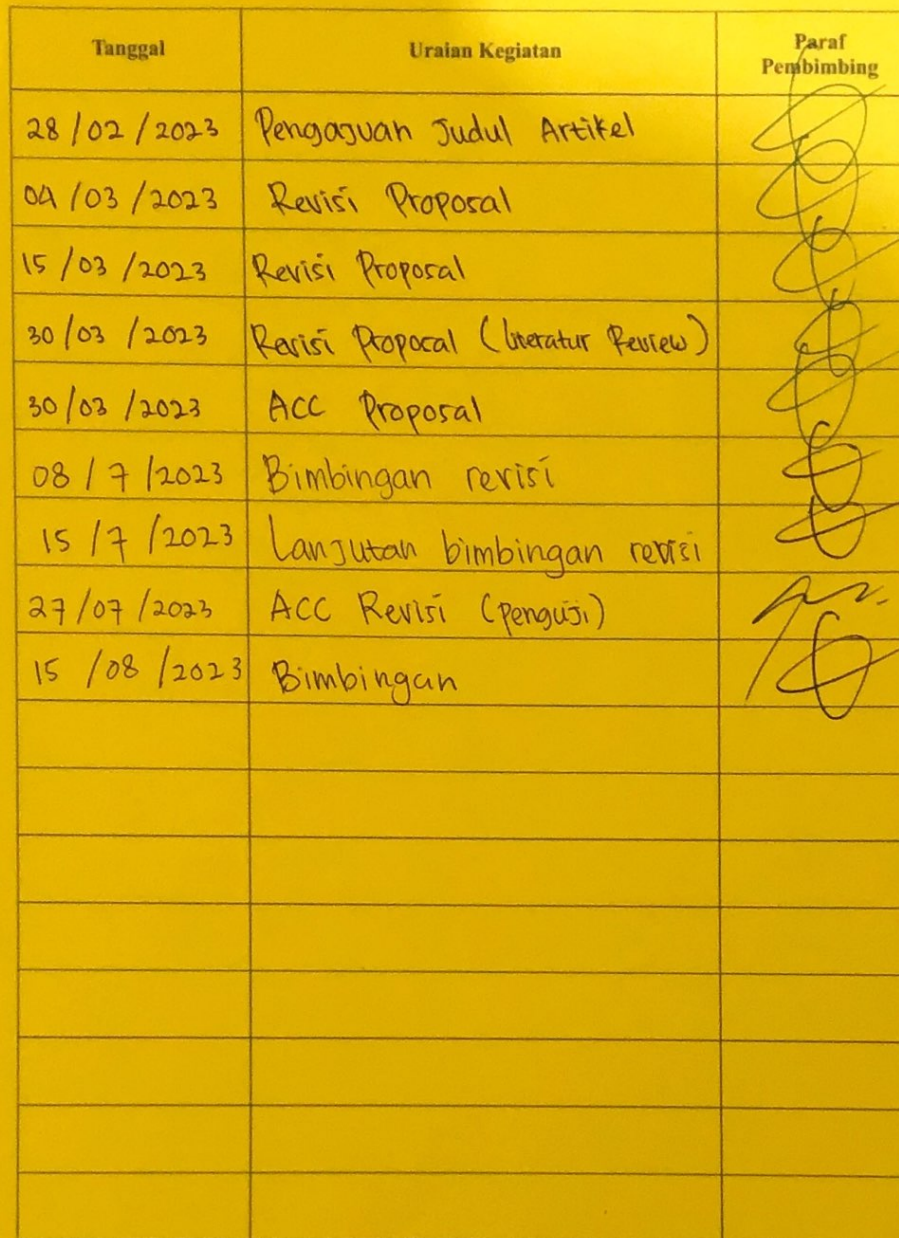 Tanggal Uraian Kegiatan Paraf
Pembimbing
28/02/2023 Pengajuan Judul Artikel
04/03/2023 Revisi Proposal
15/03/2023 Revisi Proposal
30/03/2023 Revisi Proposal (literatur Review)
30/03/2023 ACC Proposal
08/7/2023 Bimbingan revisi
15/7/2023 Lanjutan bimbingan revisi
27/07/2023 ACC Revisi (penguji)
15/08/2023 Bimbingan